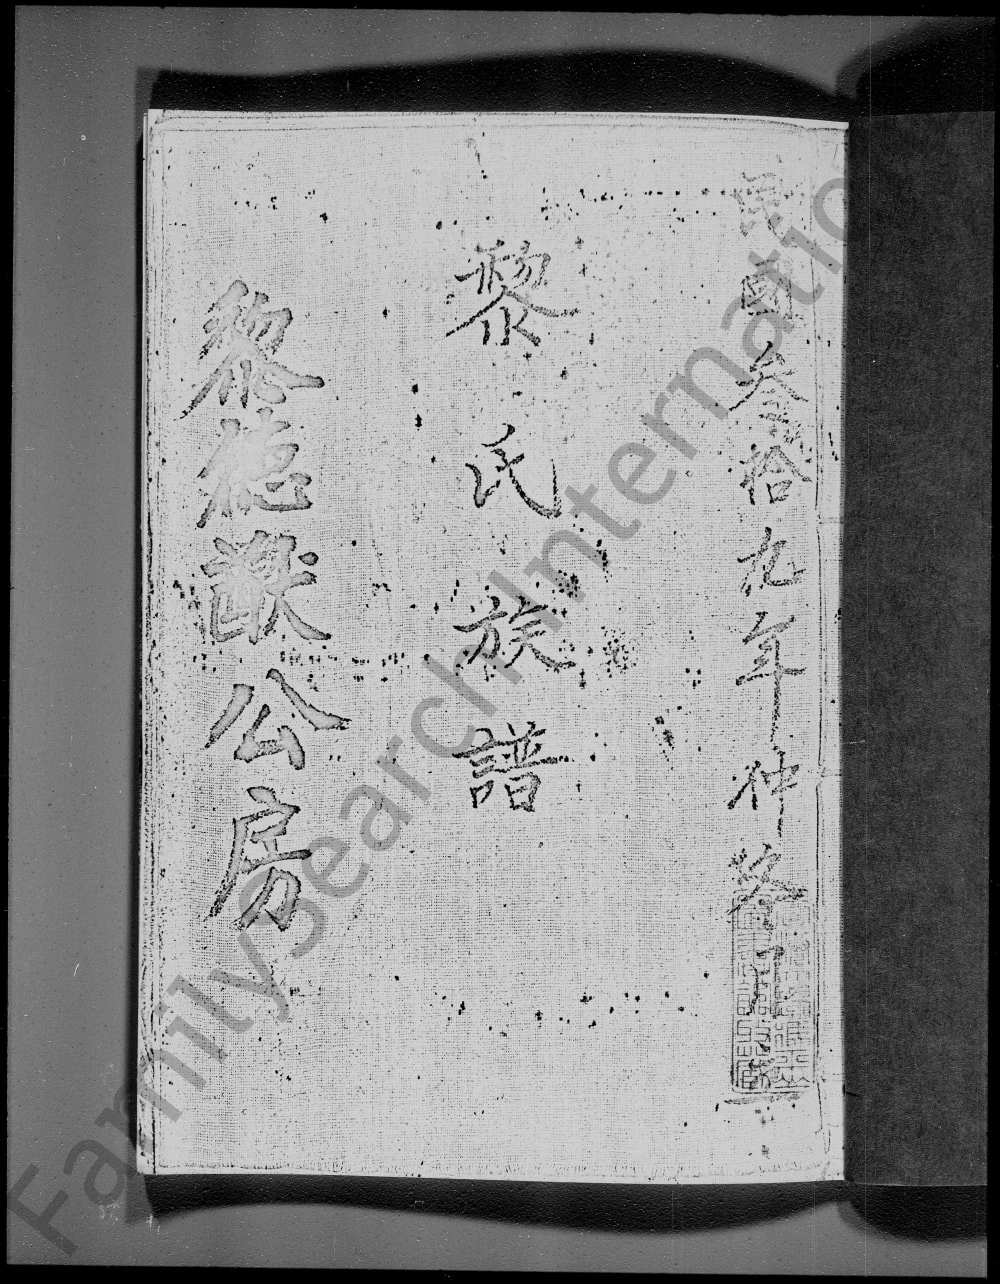 民國叁拾九年仲冬月立
黎氏族譜
黎德猷公房
FamilySearch International